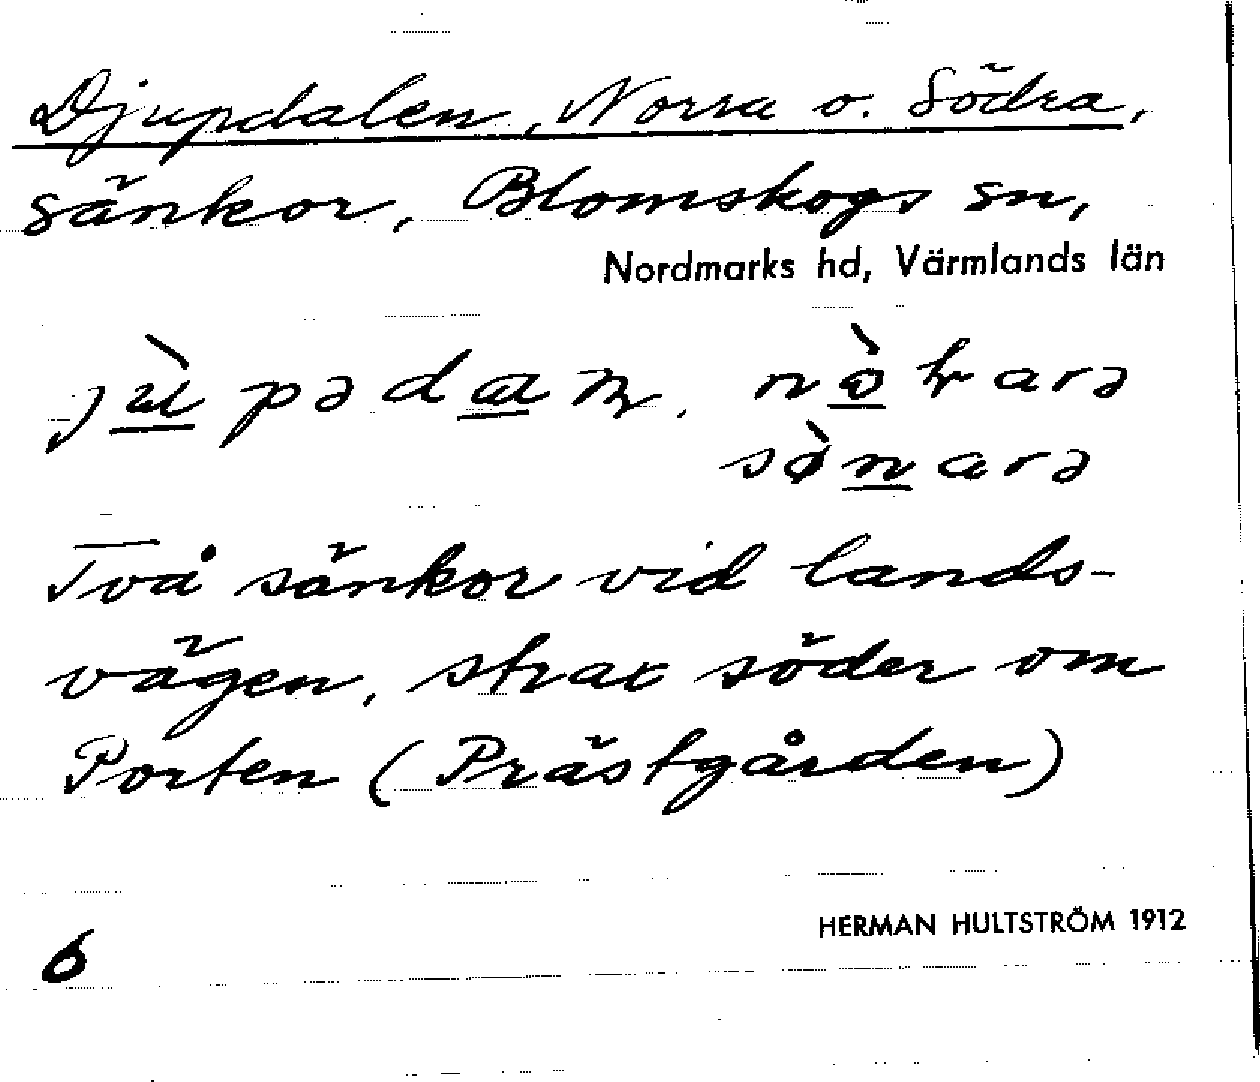 Djupdalen, Norra o. Södra,
sänkor, Blomskogs sn,
Nordmarks hd, Värmlands län
jùpədaɳ. nòrarə
sønarə
Två sänkor vid lands-
vägen, strax söder om
Porten (Prästgården)
HERMAN HULTSTRÖM 1912
6